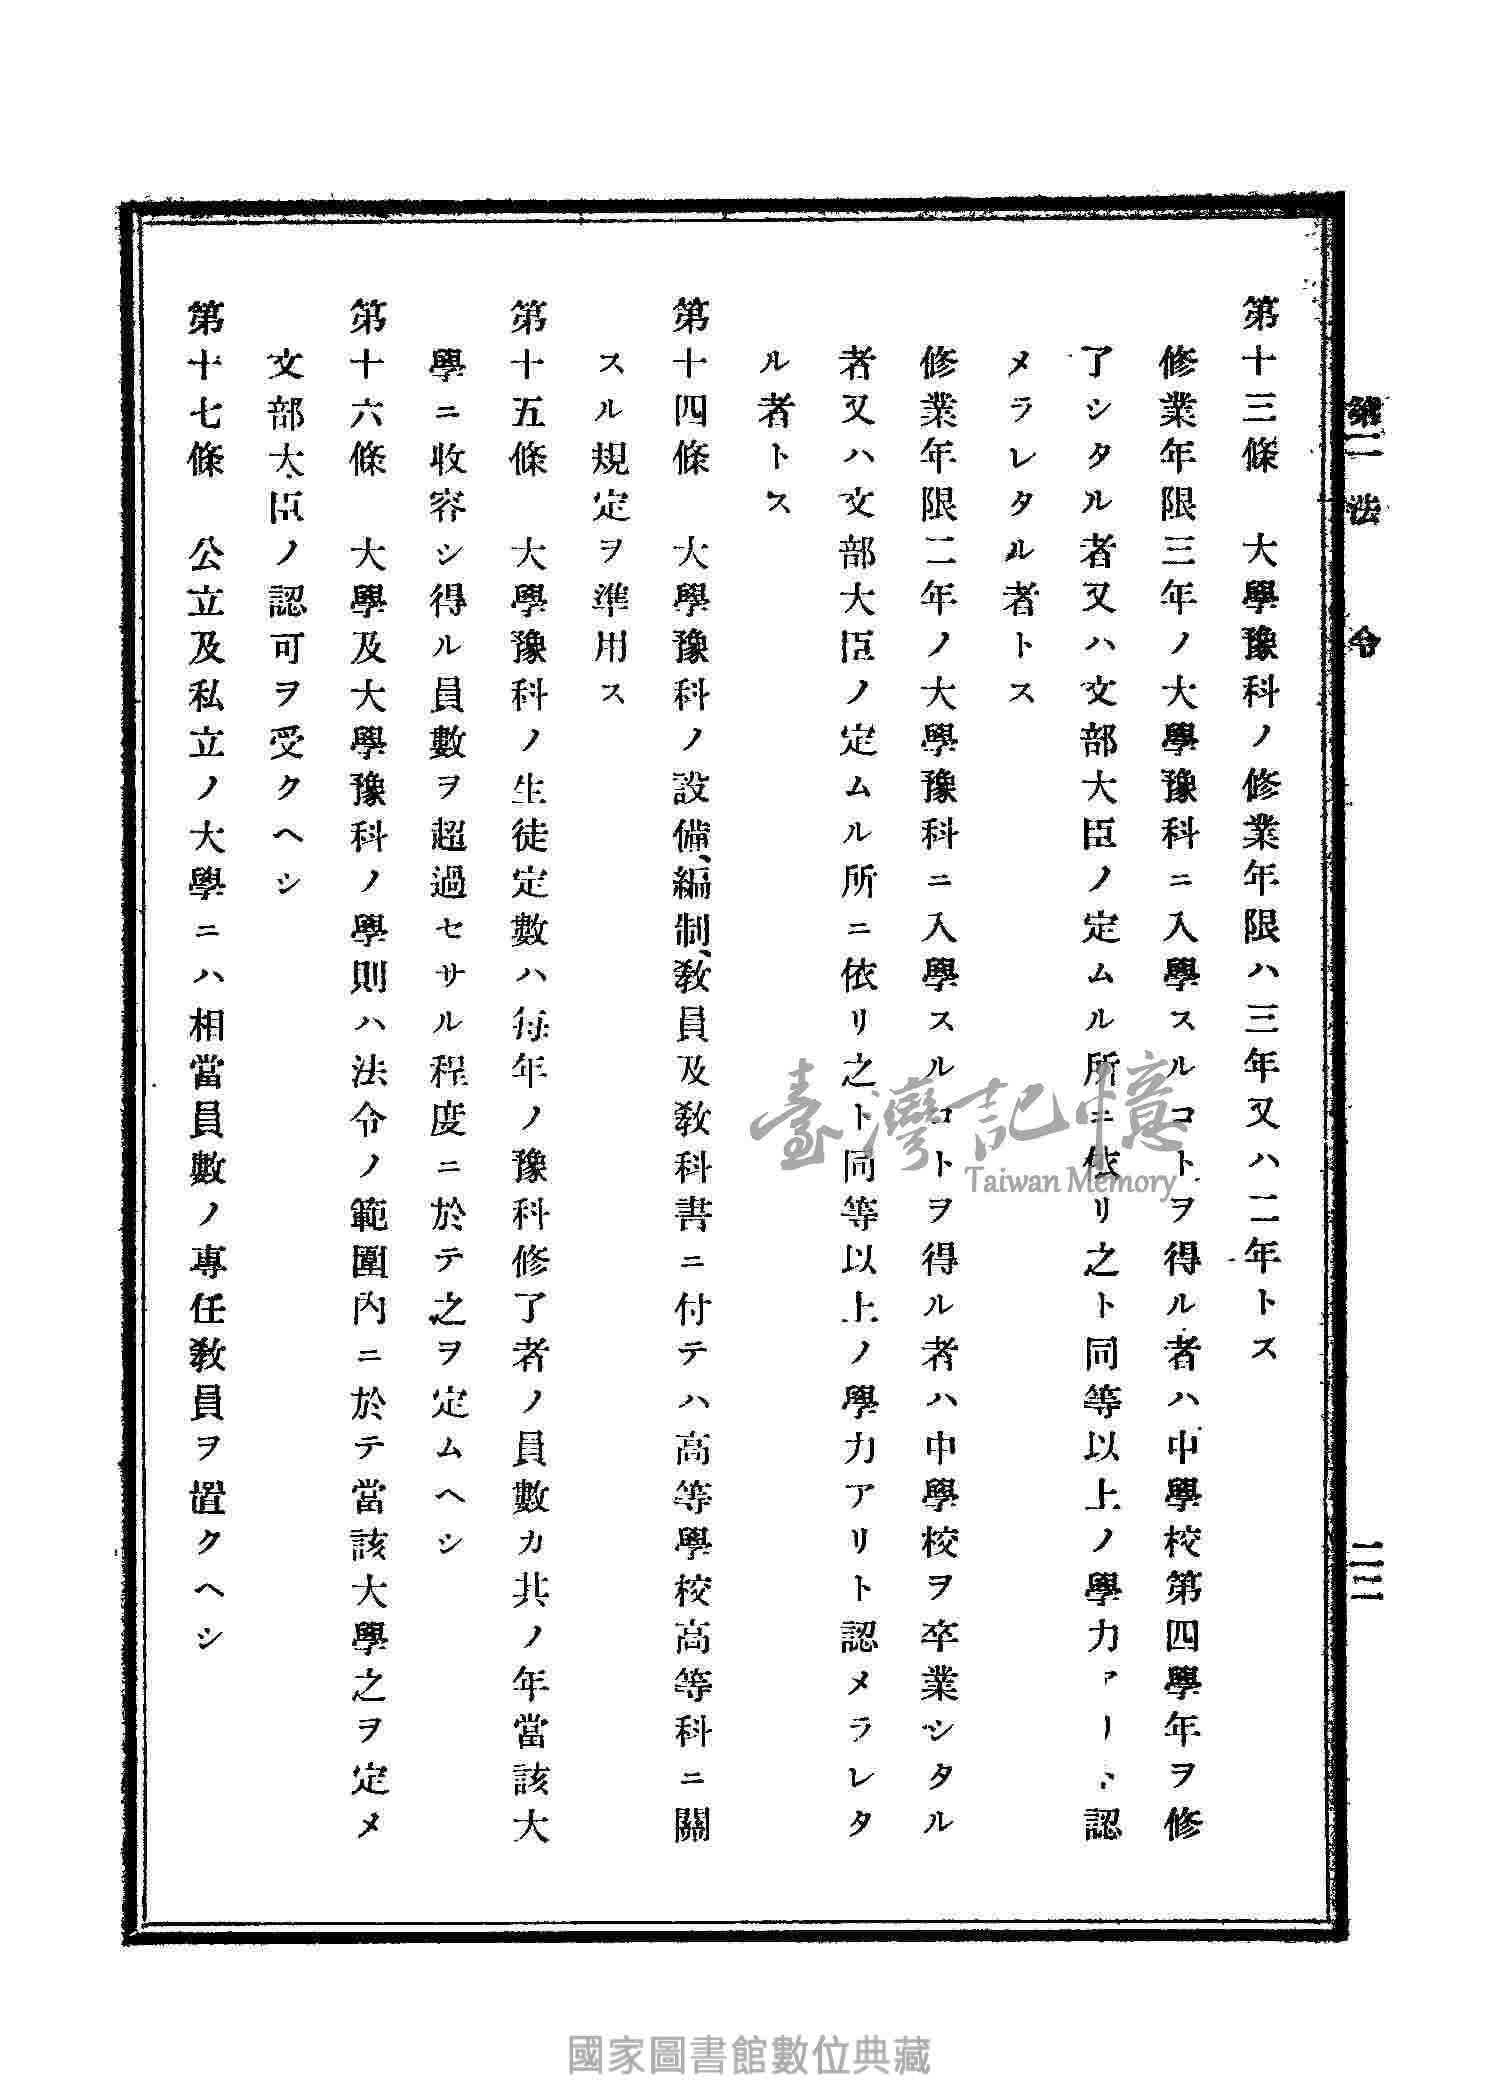 第二　法　令
二三
第十三條　大學豫科ノ修業年限ハ三年又ハ二年トス
修業年限三年ノ大學豫科ニ入學スルコトヲ得ル者ハ中學校第四學年ヲ修
了シタル者又ハ文部大臣ノ定ムル所ニ依リ之ト同等以上ノ學力アリト認
メラレタル者トス
修業年限二年ノ大學豫科ニ入學スルコトヲ得ル者ハ中學校ヲ卒業シタル
者又ハ文部大臣ノ定ムル所ニ依リ之ト同等以上ノ學力アリト認メラレタ
ル者トス
第十四條　大學豫科ノ設備、編制、教員及教科書ニ付テハ高等學校高等科ニ關
スル規定ヲ準用ス
第十五條　大學豫科ノ生徒定數ハ每年ノ豫科修了者ノ員數カ其ノ年當該大
學ニ收容シ得ル員數ヲ超過セサル程度ニ於テ之ヲ定ムヘシ
第十六條　大學及大學豫科ノ學則ハ法令ノ範圍內ニ於テ當該大學之ヲ定メ
文部大臣ノ認可ヲ受クヘシ
第十七條　公立及私立ノ大學ニハ相當員數ノ專任教員ヲ置クヘシ
臺灣記憶
Taiwan Memory
國家圖書館數位典藏